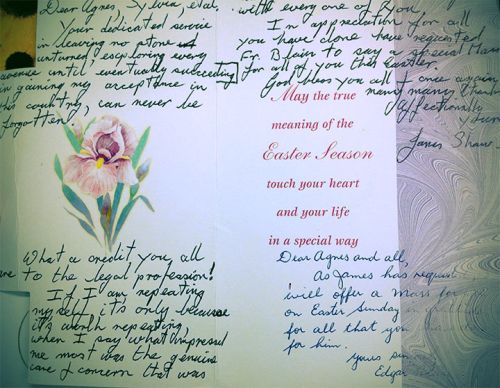 Dear Agnes, Sylvia, et al.
Your dedicated service
in leaving no stone
unturned, exploring every
avenue until eventually succeeding
in gaining my acceptance in
this country, can never be
forgotten!
What a credit you all
are to the legal profession!
If I am repeating
myself it's only because
it's worth repeating,
when I say what impressed
me most was the genuine
care & concern that was
with every one of You.
In appreciation for all
you have done have requested
Fr. to say a special Mass
for all of you this Easter.
God bless you all & once again
many many thanks
affectionally
James
May the true
meaning of the
Easter Season
touch your heart
and your life
in a special way
Dear Agnes and all,
As James has request
will offer a Mass for
on Easter Sunday in
for all that you
for him.
yours
Edgar